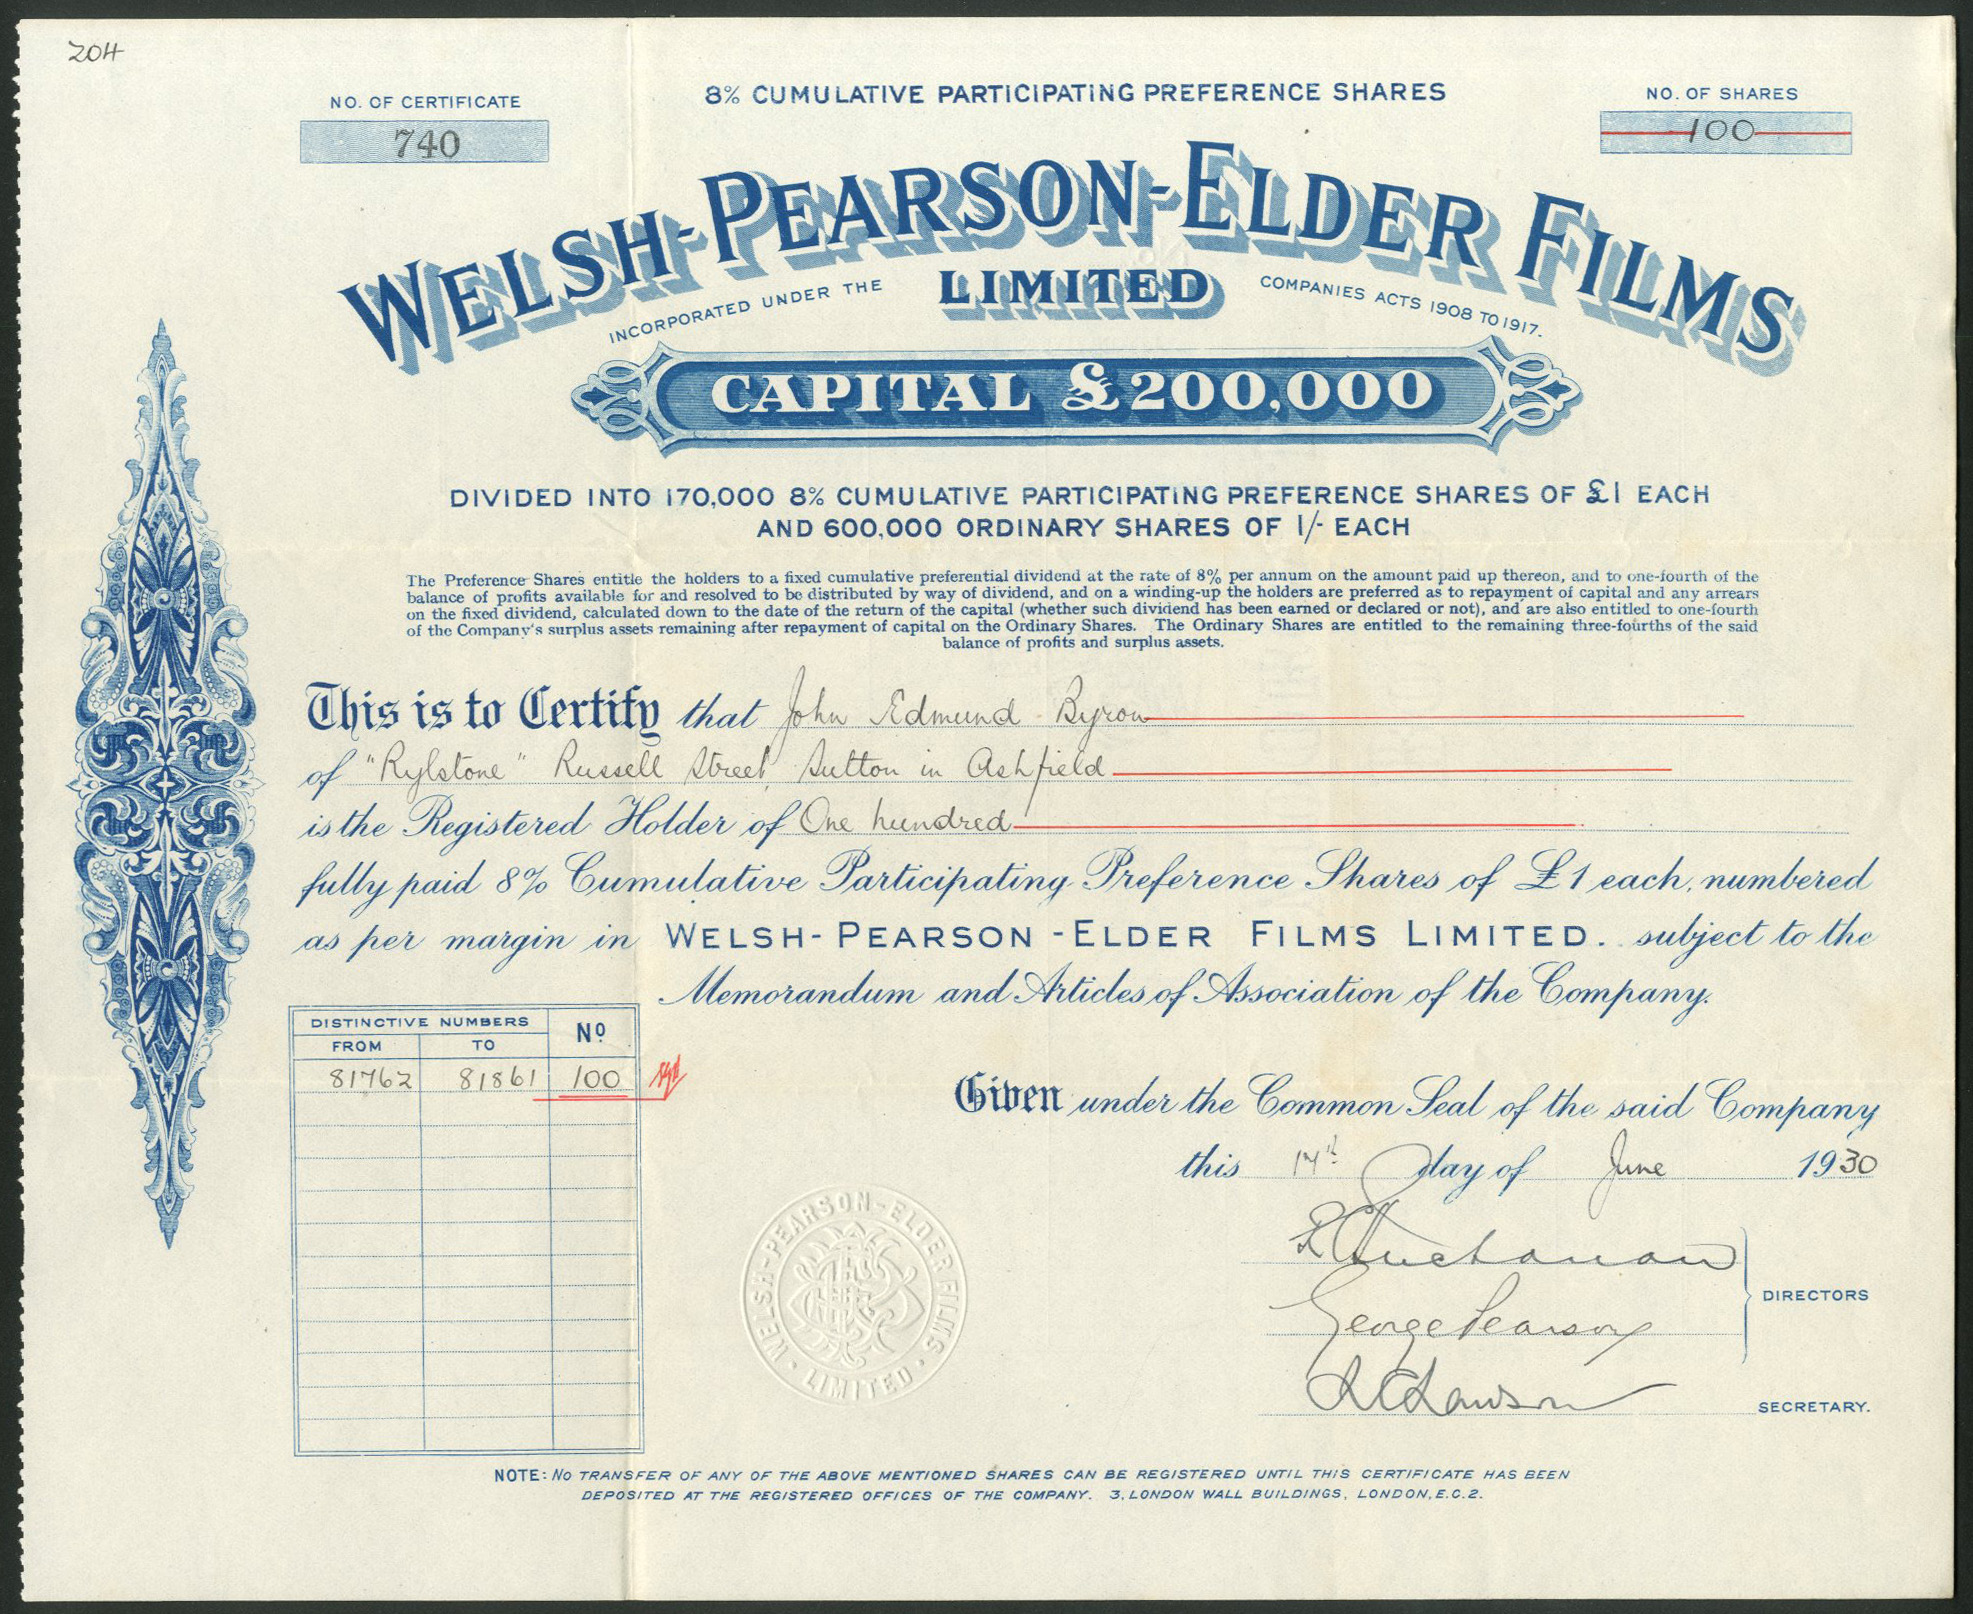 204
NO. OF CERTIFICATE
740
8% CUMULATIVE PARTICIPATING PREFERENCE SHARES
NO. OF SHARES
100
WELSH-PEARSON-ELDER FILMS
LIMITED
INCORPORATED UNDER THE COMPANIES ACTS 1908 TO 1917.
CAPITAL £200,000
DIVIDED INTO 170,000 8% CUMULATIVE PARTICIPATING PREFERENCE SHARES OF £1 EACH
AND 600,000 ORDINARY SHARES OF 1/- EACH
The Preference Shares entitle the holders to a fixed cumulative preferential dividend at the rate of 8% per annum on the amount paid up thereon, and to one-fourth of the
balance of profits available for and resolved to be distributed by way of dividend, and on a winding-up the holders are preferred as to repayment of capital and any arrears
on the fixed dividend, calculated down to the date of the return of the capital (whether such dividend has been earned or declared or not), and are also entitled to one-fourth
of the Company's surplus assets remaining after repayment of capital on the Ordinary Shares. The Ordinary Shares are entitled to the remaining three-fourths of the said
balance of profits and surplus assets.
This is to Certify that John Edmund Byron
of "Rylstone" Russell Street, Sutton in Ashfield
is the Registered Holder of One hundred
fully paid 8% Cumulative Participating Preference Shares of £1 each, numbered
as per margin in WELSH-PEARSON-ELDER FILMS LIMITED. subject to the
Memorandum and Articles of Association of the Company.
DISTINCTIVE NUMBERS
FROM TO Nº
81762 81861 100
Given under the Common Seal of the said Company
this 17th day of June 1930
George Pearson
DIRECTORS
SECRETARY.
WELSH-PEARSON-ELDER FILMS LIMITED
NOTE: NO TRANSFER OF ANY OF THE ABOVE MENTIONED SHARES CAN BE REGISTERED UNTIL THIS CERTIFICATE HAS BEEN
DEPOSITED AT THE REGISTERED OFFICES OF THE COMPANY. 3, LONDON WALL BUILDINGS, LONDON, E.C.2.